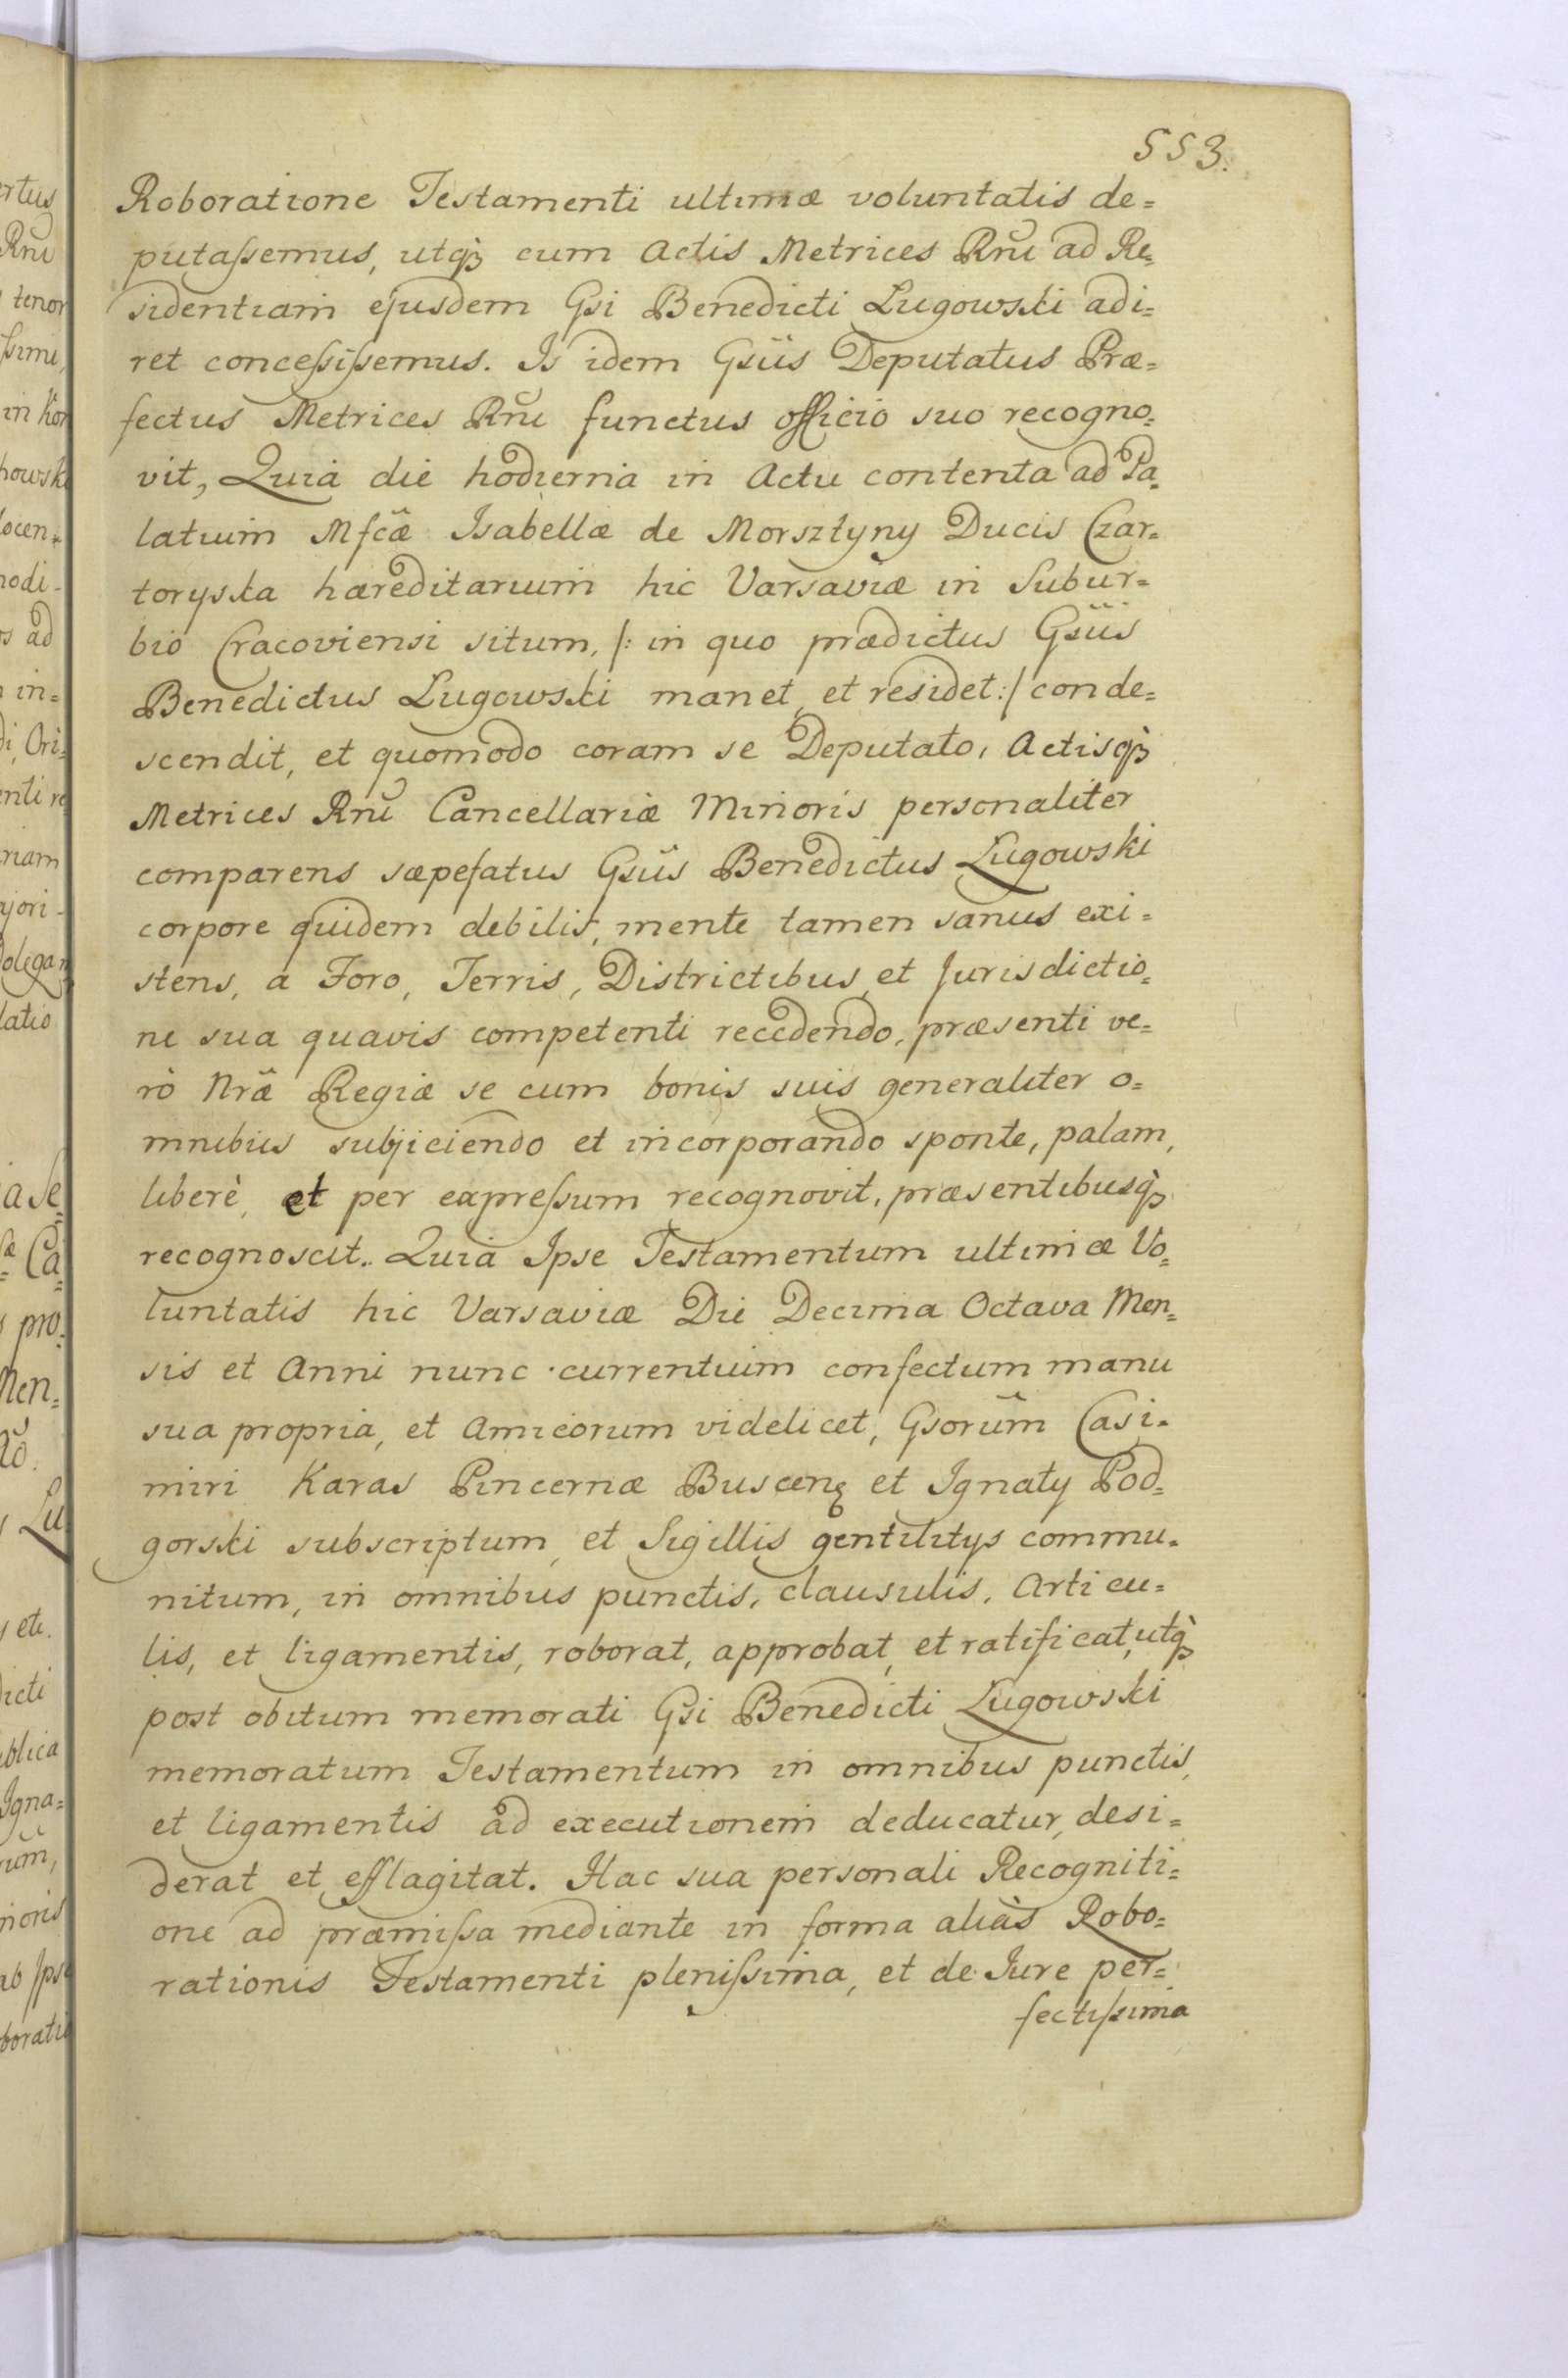 553.
Roboratione Testamenti ultimæ voluntatis de=
putaſsemus, utqꝫ cum Actis Metrices Rnĩ ad Re=
sidentiam ejusdem Gsi Benedicti Lugowski adi=
ret conceſsiſsemus. Is idem Gsũs Deputatus Præ=
fectus Metrices Rnĩ functus officio suo recogno=
vit, Quia die hodierna in Actu contenta ad Pa=
latium Mfcæ̃ Isabellæ de Morsztyny Ducis Czar=
toryska hæreditarium hic Varsaviæ in Subur=
bio Cracoviensi situm, /: in quo prædictus Gsũs
Benedictus Lugowski manet, et residet :/ conde=
scendit, et quomodo coram se Deputato, Actisqꝫ
Metrices Rnĩ Cancellariæ Minoris personaliter
comparens sæpefatus Gsũs Benedictus Lugowski
corpore quidem debilis, mente tamen sanus exi=
stens, a Foro, Terris, Districtibus, et Jurisdictio=
ne sua quavis competenti recedendo, præsenti ve=
rò Nræ̃ Regiæ se cum bonis suis generaliter o=
mnibus subjiciendo et incorporando sponte, palam,
liberè, et per expreſsum recognovit, præsentibusqꝫ
recognoscit. Quia Ipse Testamentum ultimæ Vo=
luntatis hic Varsaviæ Die Decima Octava Men=
sis et Anni nunc currentium confectum manu
sua propria, et Amicorum videlicet, Gsorũm Casi=
miri Karas Pincernæ Buscenꝫ et Ignaty Pod=
gorski subscriptum, et Sigillis gentilitys commu=
nitum, in omnibus punctis, clausulis, Articu=
lis, et ligamentis, roborat, approbat, et ratificat, utqꝫ
post obitum memorati Gsi Benedicti Lugowski
memoratum Testamentum in omnibus punctis,
et ligamentis ad executionem deducatur, desi=
derat et efflagitat. Hac sua personali Recogniti=
one ad præmiſsa mediante in forma aliàs Robo=
rationis Testamenti pleniſsima, et de Jure per=
fectiſsima